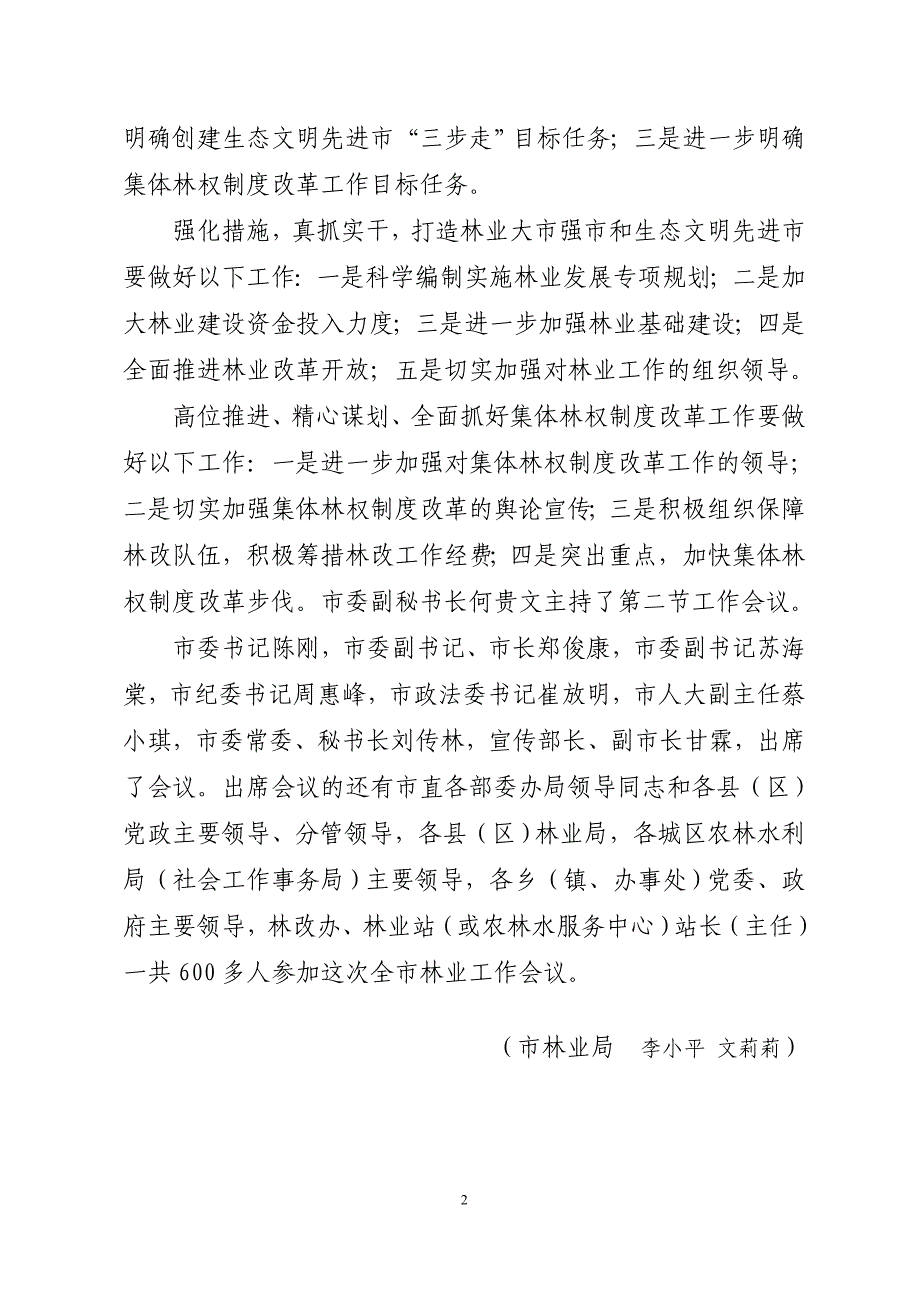 明确创建生态文明先进市“三步走”目标任务；三是进一步明确
集体林权制度改革工作目标任务。
强化措施，真抓实干，打造林业大市强市和生态文明先进市
要做好以下工作：一是科学编制实施林业发展专项规划；二是加
大林业建设资金投入力度；三是进一步加强林业基础建设；四是
全面推进林业改革开放；五是切实加强对林业工作的组织领导。
高位推进、精心谋划、全面抓好集体林权制度改革工作要做
好以下工作：一是进一步加强对集体林权制度改革工作的领导；
二是切实加强集体林权制度改革的舆论宣传；三是积极组织保障
林改队伍，积极筹措林改工作经费；四是突出重点，加快集体林
权制度改革步伐。市委副秘书长何贵文主持了第二节工作会议。
市委书记陈刚，市委副书记、市长郑俊康，市委副书记苏海
棠，市纪委书记周惠峰，市政法委书记崔放明，市人大副主任蔡
小琪，市委常委、秘书长刘传林，宣传部长、副市长甘霖，出席
了会议。出席会议的还有市直各部委办局领导同志和各县（区）
党政主要领导、分管领导，各县（区）林业局，各城区农林水利
局（社会工作事务局）主要领导，各乡（镇、办事处）党委、政
府主要领导，林改办、林业站（或农林水服务中心）站长（主任）
一共 600 多人参加这次全市林业工作会议。
（市林业局　李小平 文莉莉）
2